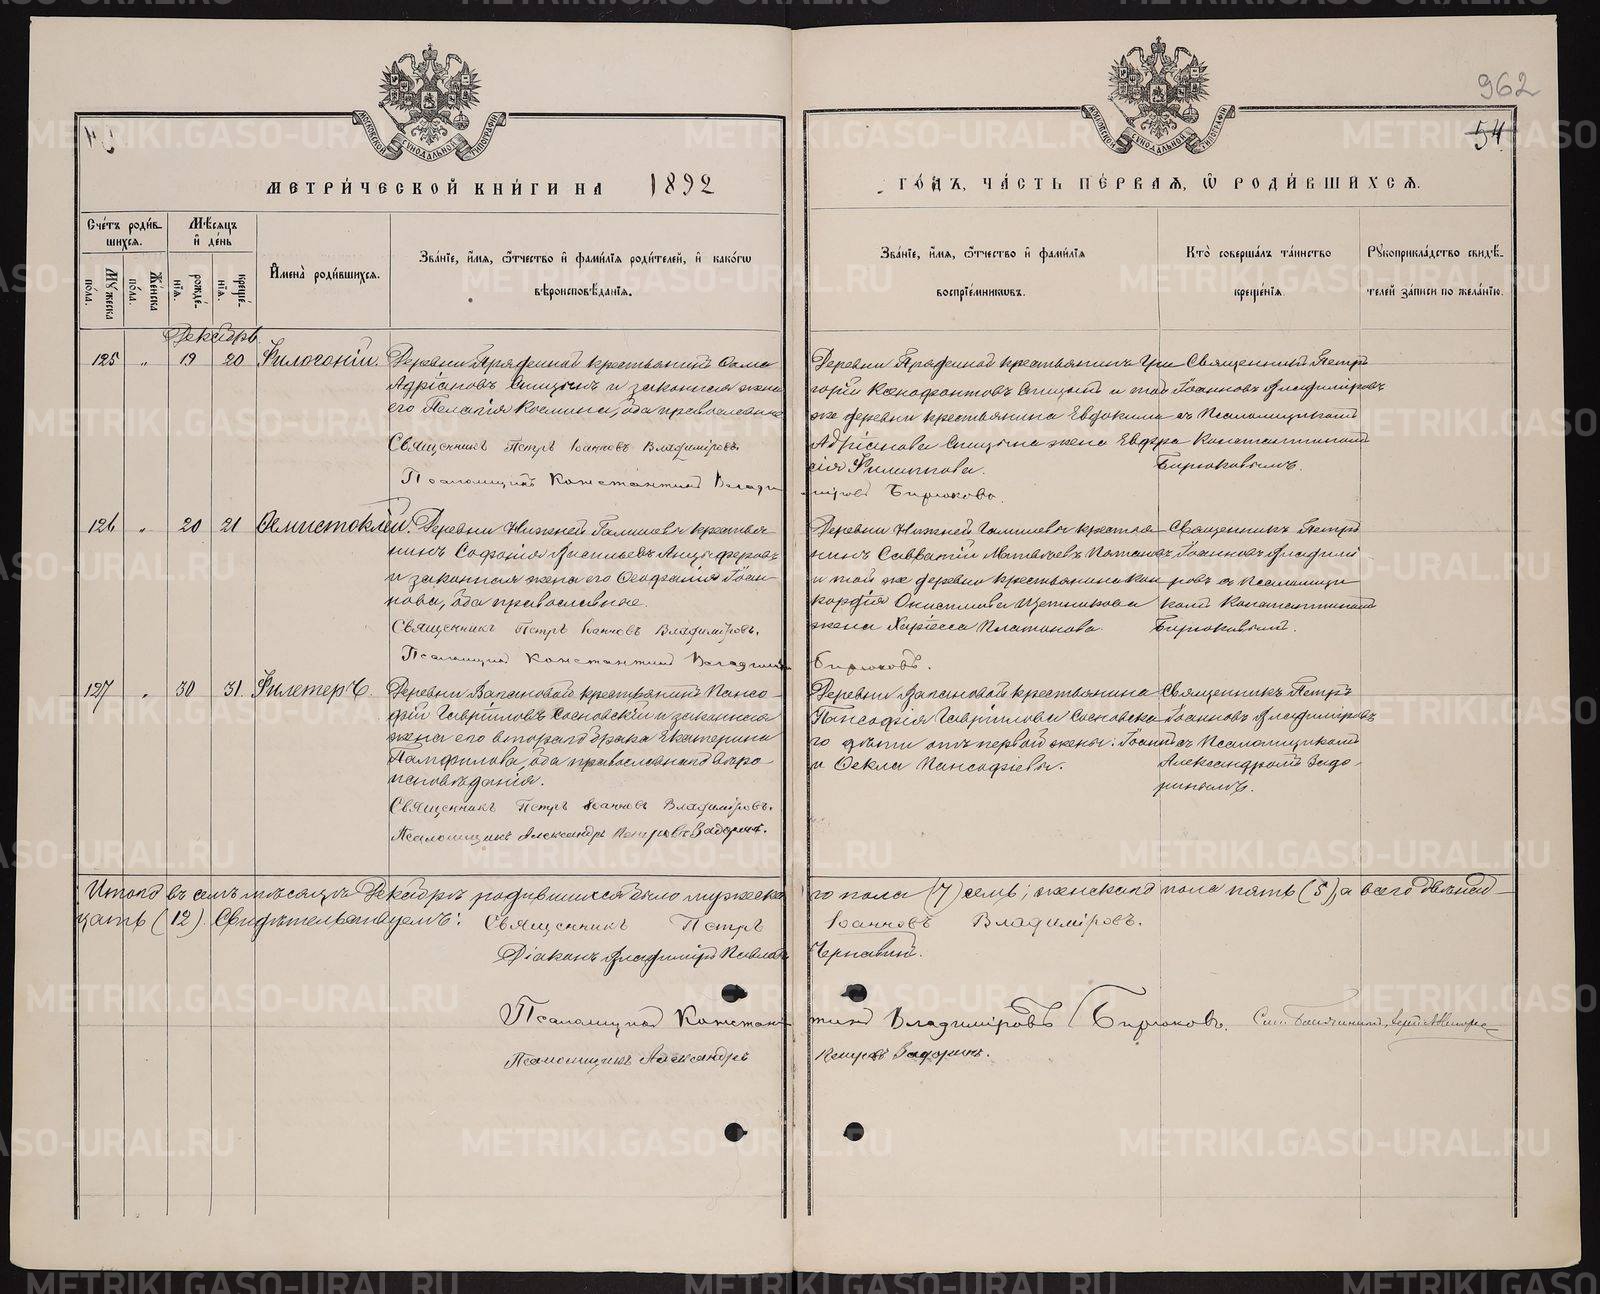 962
54
МЕТРИ́ЧЕСКОЙ КНИ́ГИ НА 1892
ГО́ДЪ, ЧА́СТЬ ПЕ́РВАЯ, Ѡ҆ РОДИ́ВШИХСЯ.
Сче́тъ роди́в-
шихся.
Му́жеска
по́ла.
Же́нска
по́ла.
Мѣ́сяцъ
и҆ де́нь
рожде́-
нїя.
креще́-
нїя.
И҆мена̀ роди́вшихся.
Зва́нїе, и҆́мя, ѻ҆́тчество и҆ фами́лїя роди́телей, и҆ како́гѡ
вѣроисповѣ́данїя.
Зва́нїе, и҆́мя, ѻ҆́тчество и҆ фами́лїя
воспрїе́мникѡвъ.
Кто̀ соверша́лъ та́инство
креще́нїя.
Рꙋкоприкла́дство свидѣ́-
телей за́писи по жела́нїю.
Декабрь
125 " 19 20 Филогоній.
Деревни крестьянинъ Ѳома
Адріановъ Спицынъ и законная жена
его Пелагія Космина, оба православные
Священникъ Петръ Іоанновъ Владиміровъ.
Псаломщикъ Константинъ Влади
міровъ Бирюковъ.
Деревни крестьянинъ Гри
горій Ксенофонтовъ Спицынъ и той
же деревни крестьянина Евдокима
Адріанова Спицына жена Евфра
сія Филиппова.
Священникъ Петръ
Іоанновъ Владиміровъ
съ Псаломщикомъ
Константиномъ
Бирюковымъ.
126 " 20 21 Ѳемистоклій.
Деревни Нижней крестья
нинъ Софонія Васильевъ Анцыферовъ
и законная жена его Ѳеофанія Іоан
нова, оба православные.
Священникъ Петръ Іоанновъ Владиміровъ.
Псаломщикъ Константинъ Владиміровъ
Бирюковъ.
Деревни Нижней крестья
нинъ Савватій Матвѣевъ Потаповъ
и той же деревни крестьянина Кон
кордія жена Платонова.
Священникъ Петръ
Іоанновъ Владимі
ровъ съ Псаломщи
комъ Константиномъ
Бирюковымъ.
127 " 30 31 Филетеръ.
Деревни крестьянинъ Пансо-
фій Гавріиловъ Сосновскій и законная
жена его втораго брака Екатерина
Памфилова, оба православнаго вѣро
исповѣданія.
Священникъ Петръ Іоанновъ Владиміровъ.
Псаломщикъ Александръ Петровъ Задоринъ.
Деревни крестьянина
Пансофія Гавріилова Сосновска
го дѣти отъ первой жены: Іоаннъ
и Ѳекла Пансофіевы.
Священникъ Петръ
Іоанновъ Владиміровъ
съ Псаломщикомъ
Александромъ Задо-
ринымъ.
Итого въ семъ мѣсяцѣ Декабрѣ родившихся было мужеска
го пола (7) семь; женскаго пола пять (5), а всего двѣнад-
цать (12). Свидѣтельствуемъ: Священникъ Петръ
Іоанновъ Владиміровъ.
Діаконъ Владиміръ Павловъ Чернавинъ.
Псаломщикъ Константинъ Владиміровъ Бирюковъ.
Псаломщикъ Александръ Петровъ Задоринъ.
METRIKI.GASO-URAL.RU